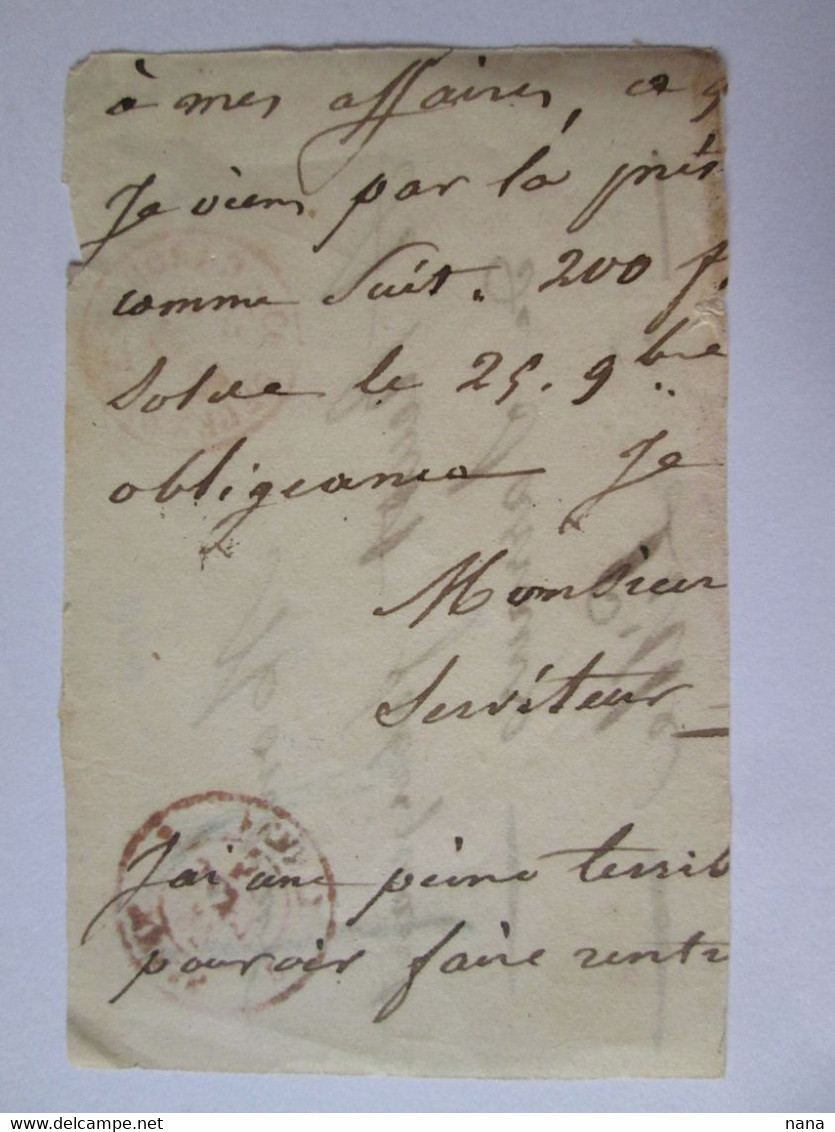 à mes affaires, et
Je viens par la prés
comme suit. 200 f.
Solde le 25. 9bre
obligeance Je
Monsieur
Serviteur
J'ai une peine terrib
pouvoir faire rentr
delcampe.net
nana